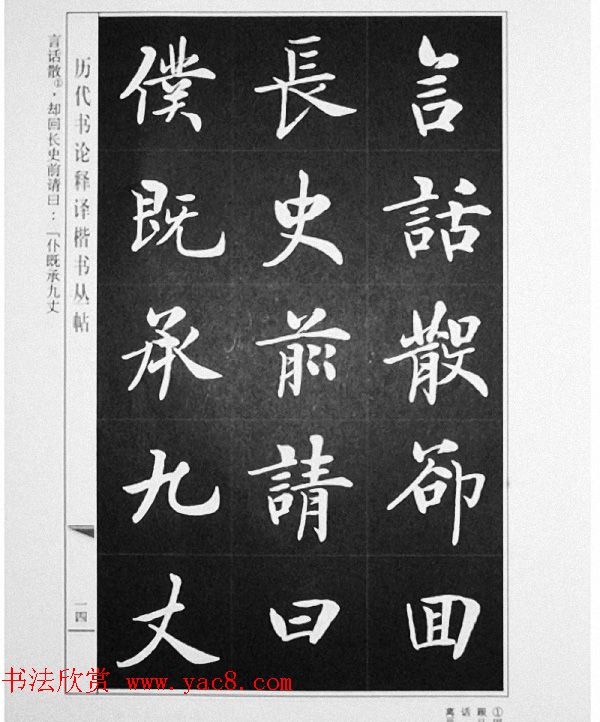 言話散卻回
長史前請曰
僕既承九丈
历代书论释译楷书丛帖
一四
言话散①，却回长史前请曰：「仆既承九丈
书法欣赏 www.yac8.com